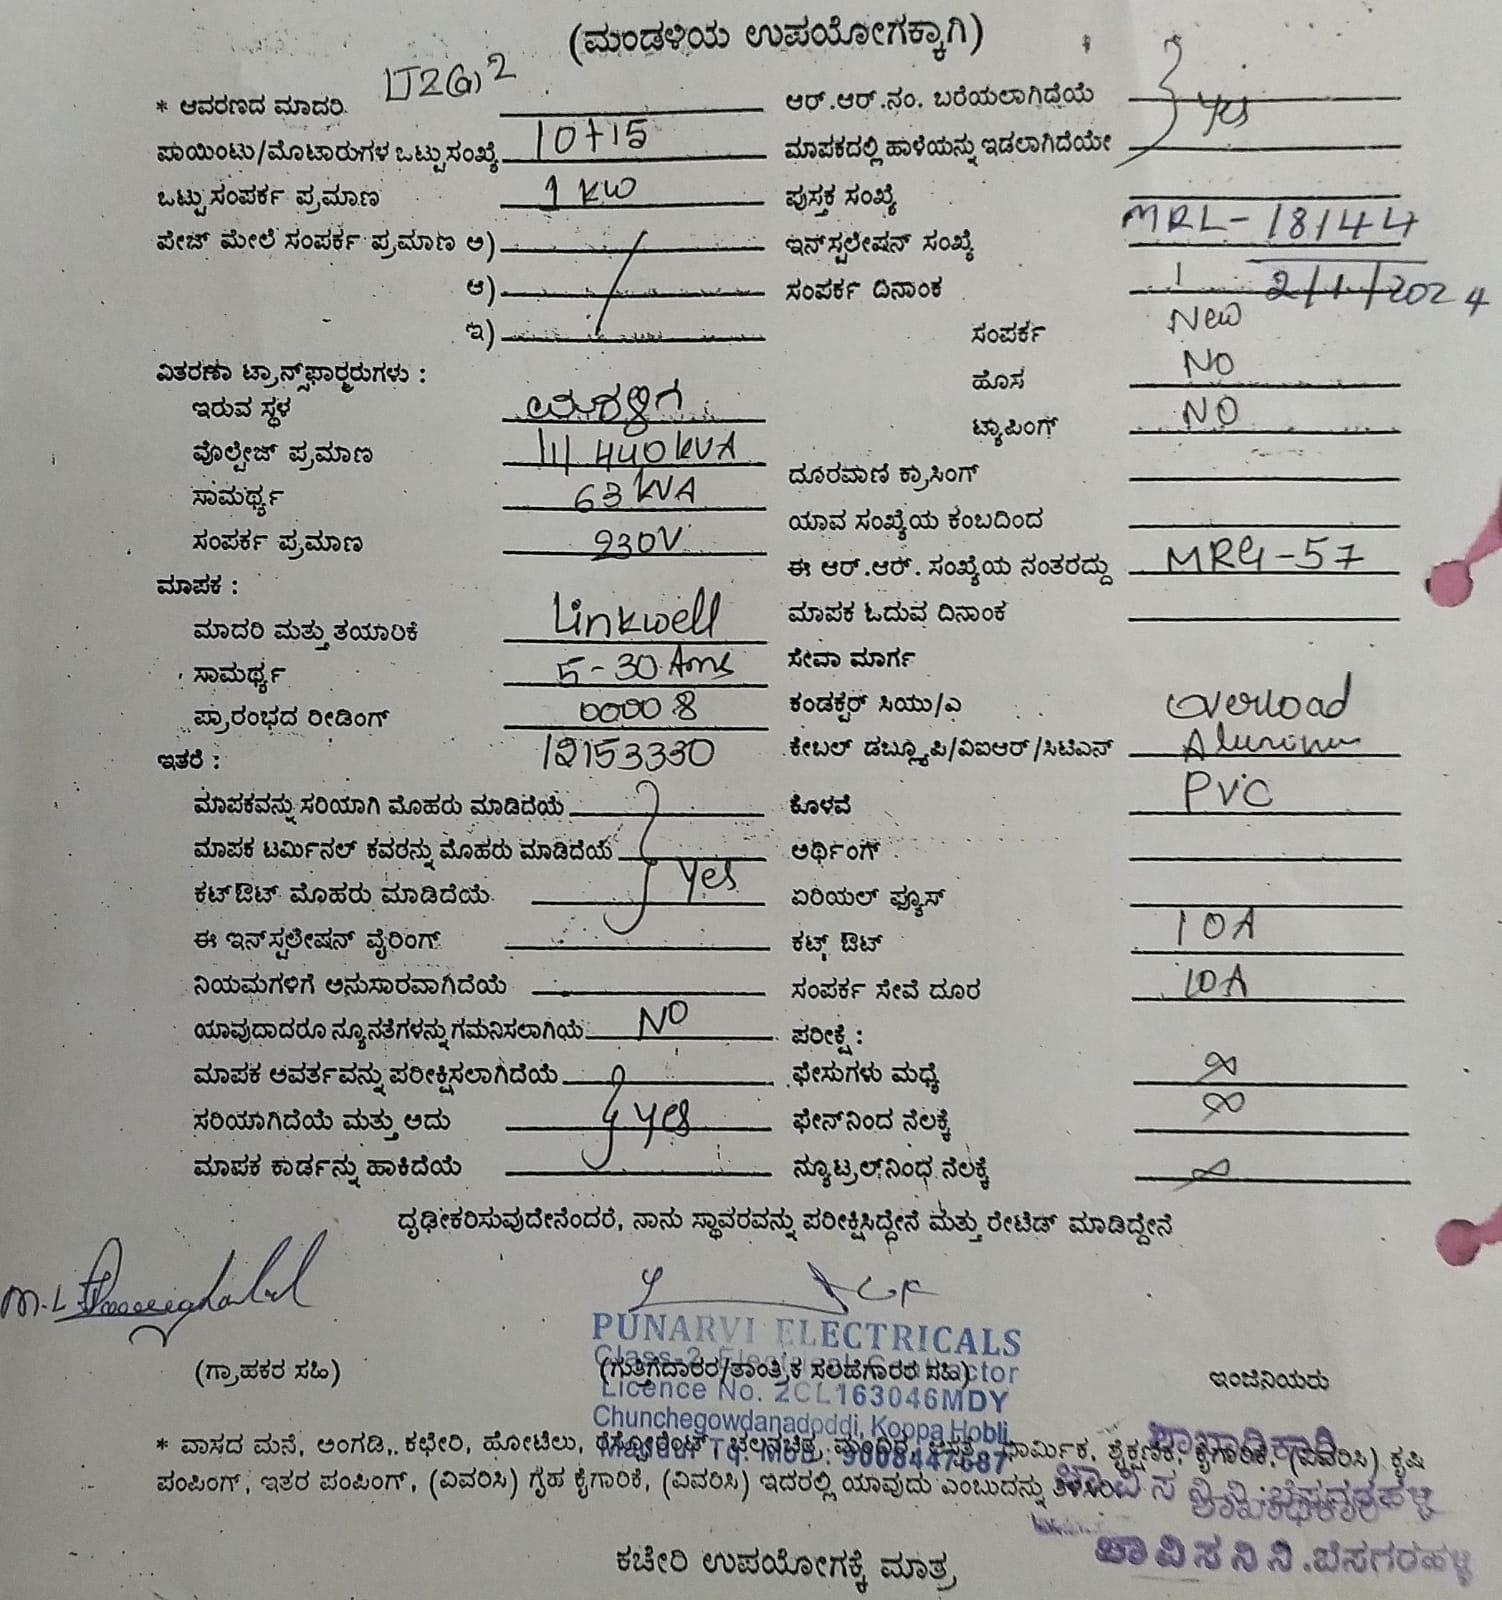 (ಮಂಡಳಿಯ ಉಪಯೋಗಕ್ಕಾಗಿ)
* ಆವರಣದ ಮಾದರಿ. LT2(a)2
ಪಾಯಿಂಟು/ಮೊಟಾರುಗಳ ಒಟ್ಟು ಸಂಖ್ಯೆ 10+15
ಒಟ್ಟು ಸಂಪರ್ಕ ಪ್ರಮಾಣ 1 KW
ಪೇಚ್ ಮೇಲೆ ಸಂಪರ್ಕ ಪ್ರಮಾಣ ಅ)
ಆ)
ಇ)
ವಿತರಣಾ ಟ್ರಾನ್ಸ್‌ಫಾರ್ಮರುಗಳು :
ಇರುವ ಸ್ಥಳ
ವೊಲ್ಟೇಜ್ ಪ್ರಮಾಣ 11/440KVA
ಸಾಮರ್ಥ್ಯ 63 KVA
ಸಂಪರ್ಕ ಪ್ರಮಾಣ 230V
ಮಾಪಕ :
ಮಾದರಿ ಮತ್ತು ತಯಾರಿಕೆ Linkwell
ಸಾಮರ್ಥ್ಯ 5-30 Ams
ಪ್ರಾರಂಭದ ರೀಡಿಂಗ್ 00008
ಇತರೆ : 12153330
ಮಾಪಕವನ್ನು ಸರಿಯಾಗಿ ಮೊಹರು ಮಾಡಿದೆಯೆ
ಮಾಪಕ ಟರ್ಮಿನಲ್ ಕವರನ್ನು ಮೊಹರು ಮಾಡಿದೆಯೆ
ಕಟ್‌ಔಟ್ ಮೊಹರು ಮಾಡಿದೆಯೆ. Yes
ಈ ಇನ್‌ಸ್ಟಲೇಷನ್ ವೈರಿಂಗ್
ನಿಯಮಗಳಿಗೆ ಅನುಸಾರವಾಗಿದೆಯೆ
ಯಾವುದಾದರೂ ನ್ಯೂನತೆಗಳನ್ನು ಗಮನಿಸಲಾಗಿಯೆ NO
ಮಾಪಕ ಆವರ್ತವನ್ನು ಪರೀಕ್ಷಿಸಲಾಗಿದೆಯೆ
ಸರಿಯಾಗಿದೆಯೆ ಮತ್ತು ಅದು yes
ಮಾಪಕ ಕಾರ್ಡನ್ನು ಹಾಕಿದೆಯೆ
ಆರ್.ಆರ್.ನಂ. ಬರೆಯಲಾಗಿದೆಯೆ Yes
ಮಾಪಕದಲ್ಲಿ ಹಾಳೆಯನ್ನು ಇಡಲಾಗಿದೆಯೇ
ಪುಸ್ತಕ ಸಂಖ್ಯೆ
ಇನ್‌ಸ್ಟಲೇಷನ್ ಸಂಖ್ಯೆ MRL-18144
ಸಂಪರ್ಕ ದಿನಾಂಕ 2/1/2024
ಸಂಪರ್ಕ New
ಹೊಸ NO
ಟ್ಯಾಪಿಂಗ್ NO
ದೂರವಾಣಿ ಕ್ರಾಸಿಂಗ್
ಯಾವ ಸಂಖ್ಯೆಯ ಕಂಬದಿಂದ
ಈ ಆರ್.ಆರ್. ಸಂಖ್ಯೆಯ ನಂತರದ್ದು MRG-57
ಮಾಪಕ ಓದುವ ದಿನಾಂಕ
ಸೇವಾ ಮಾರ್ಗ
ಕಂಡಕ್ಟರ್ ಸಿಯು/ಎ overload
ಕೇಬಲ್ ಡಬ್ಲ್ಯೂಪಿ/ವಿಐಆರ್/ಸಿಟಿಎಸ್
ಕೊಳವೆ PVC
ಅರ್ಥಿಂಗ್
ಏರಿಯಲ್ ಫ್ಯೂಸ್
ಕಟ್ಔಟ್ 10A
ಸಂಪರ್ಕ ಸೇವೆ ದೂರ 10A
ಪರೀಕ್ಷೆ :
ಫೇಸುಗಳು ಮಧ್ಯೆ ∞
ಫೇಸ್‌ನಿಂದ ನೆಲಕ್ಕೆ ∞
ನ್ಯೂಟ್ರಲ್‌ನಿಂಧ ನೆಲಕ್ಕೆ ∞
ದೃಢೀಕರಿಸುವುದೇನೆಂದರೆ, ನಾನು ಸ್ಥಾವರವನ್ನು ಪರೀಕ್ಷಿಸಿದ್ದೇನೆ ಮತ್ತು ರೇಟೆಡ್ ಮಾಡಿದ್ದೇನೆ
PUNARVI ELECTRICALS
Class-2 Electrical Contractor
Licence No. 2CL163046MDY
Chunchegowdanadoddi, Koppa Hobli
Maddur Tq. Mob: 9008447687
(ಗ್ರಾಹಕರ ಸಹಿ)
(ಗುತ್ತಿಗೆದಾರರ/ತಾಂತ್ರಿಕ ಸಲಹೆಗಾರರ ಸಹಿ)
ಇಂಜಿನಿಯರು
* ವಾಸದ ಮನೆ, ಅಂಗಡಿ, ಕಛೇರಿ, ಹೋಟೆಲು, ರೆಸ್ಟೋರೆಂಟ್, ಚಲನಚಿತ್ರ ಮಂದಿರ, ಆಸ್ಪತ್ರೆ, ಧಾರ್ಮಿಕ, ಶೈಕ್ಷಣಿಕ, ಕೈಗಾರಿಕೆ, (ವಿವರಿಸಿ) ಕೃಷಿ
ಪಂಪಿಂಗ್, ಇತರ ಪಂಪಿಂಗ್, (ವಿವರಿಸಿ) ಗೃಹ ಕೈಗಾರಿಕೆ, (ವಿವರಿಸಿ) ಇದರಲ್ಲಿ ಯಾವುದು ಎಂಬುದನ್ನು ತಿಳಿಸಿರಿ
ಶಾಖಾಧಿಕಾರಿ
ಚಾವಿಸನಿನಿ.ಬೆಸಗರಹಳ್ಳಿ
ಕಚೇರಿ ಉಪಯೋಗಕ್ಕೆ ಮಾತ್ರ